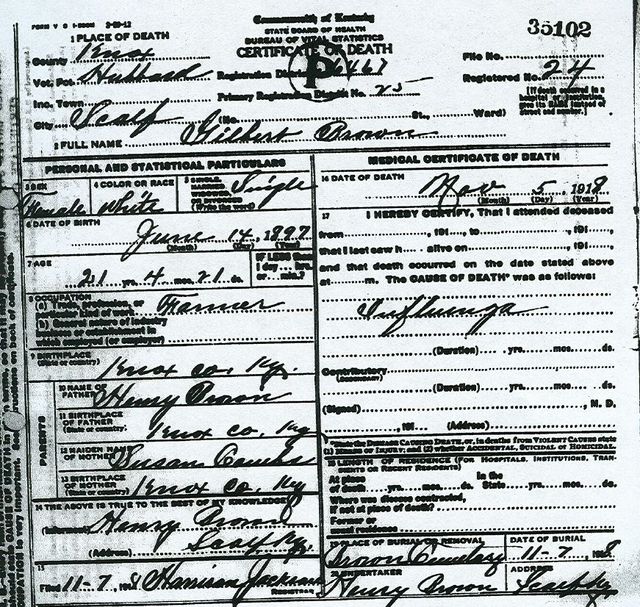 FORM V S 1-500M 2-28-12
Commonwealth of Kentucky
STATE BOARD OF HEALTH
BUREAU OF VITAL STATISTICS
CERTIFICATE OF DEATH
35102
1 PLACE OF DEATH
County Knox
Vot. Pct. Hubbard
Registration District 6467
File No.
Registered No. 24
Inc. Town
Primary Registration District No. 25
City Scalf (No. St., Ward)
[If death occurred in a hospital or institution, give its NAME instead of street and number.]
2 FULL NAME Gilbert Brown
PERSONAL AND STATISTICAL PARTICULARS
3 SEX Female
4 COLOR OR RACE White
5 SINGLE, MARRIED, WIDOWED OR DIVORCED (Write the word) Single
6 DATE OF BIRTH
June 14, 1897
(Month) (Day) (Year)
7 AGE
21 yrs. 4 mos. 21 ds.
IF LESS than 1 day... hrs. or... min.?
8 OCCUPATION
(a) Trade, profession, or particular kind of work Farmer
(b) General nature of industry business or establishment in which employed (or employer)
9 BIRTHPLACE
(State or country) Knox Co. Ky.
PARENTS
10 NAME OF FATHER Henry Brown
11 BIRTHPLACE OF FATHER
(State or country) Knox Co. Ky
12 MAIDEN NAME OF MOTHER Susan
13 BIRTHPLACE OF MOTHER
(State or country) Knox Co. Ky
14 THE ABOVE IS TRUE TO THE BEST OF MY KNOWLEDGE
(Informant) Henry Brown
(Address) Scalf Ky.
15
Filed 11-7, 1918 Harrison Jackson
REGISTRAR
MEDICAL CERTIFICATE OF DEATH
16 DATE OF DEATH
Nov 5, 1918
(Month) (Day) (Year)
17 I HEREBY CERTIFY, That I attended deceased
from , 191 , to , 191 ,
that I last saw h alive on , 191 ,
and that death occurred on the date stated above
at m. The CAUSE OF DEATH* was as follows:
Influenza
(Duration) yrs. mos. ds.
Contributory
(SECONDARY)
(Duration) yrs. mos. ds.
(Signed) , M. D.
, 191 (Address)
*State the DISEASE CAUSING DEATH, or, in deaths from VIOLENT CAUSES state (1) MEANS OF INJURY; and (2) whether ACCIDENTAL, SUICIDAL or HOMICIDAL.
18 LENGTH OF RESIDENCE (FOR HOSPITALS, INSTITUTIONS, TRANSIENTS OR RECENT RESIDENTS)
At place of death yrs. mos. ds. In the State yrs. mos. ds.
Where was disease contracted,
If not at place of death?
Former or
usual residence
19 PLACE OF BURIAL OR REMOVAL
Brown Cemetery
DATE OF BURIAL
11-7, 1918
20 UNDERTAKER
Henry Brown
ADDRESS
Scalf Ky